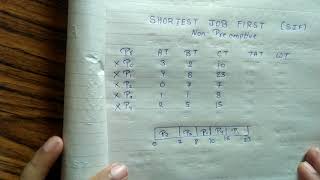 SHORTEST JOB FIRST (SJF)
Non Preemptive
AT BT CT TAT WT
x P0 3 2 10
x P1 4 8 23
x P2 0 7 7
x P3 1 1 8
x P4 2 5 15
P2 P3 P0 P4 P1
0 7 8 10 15 23